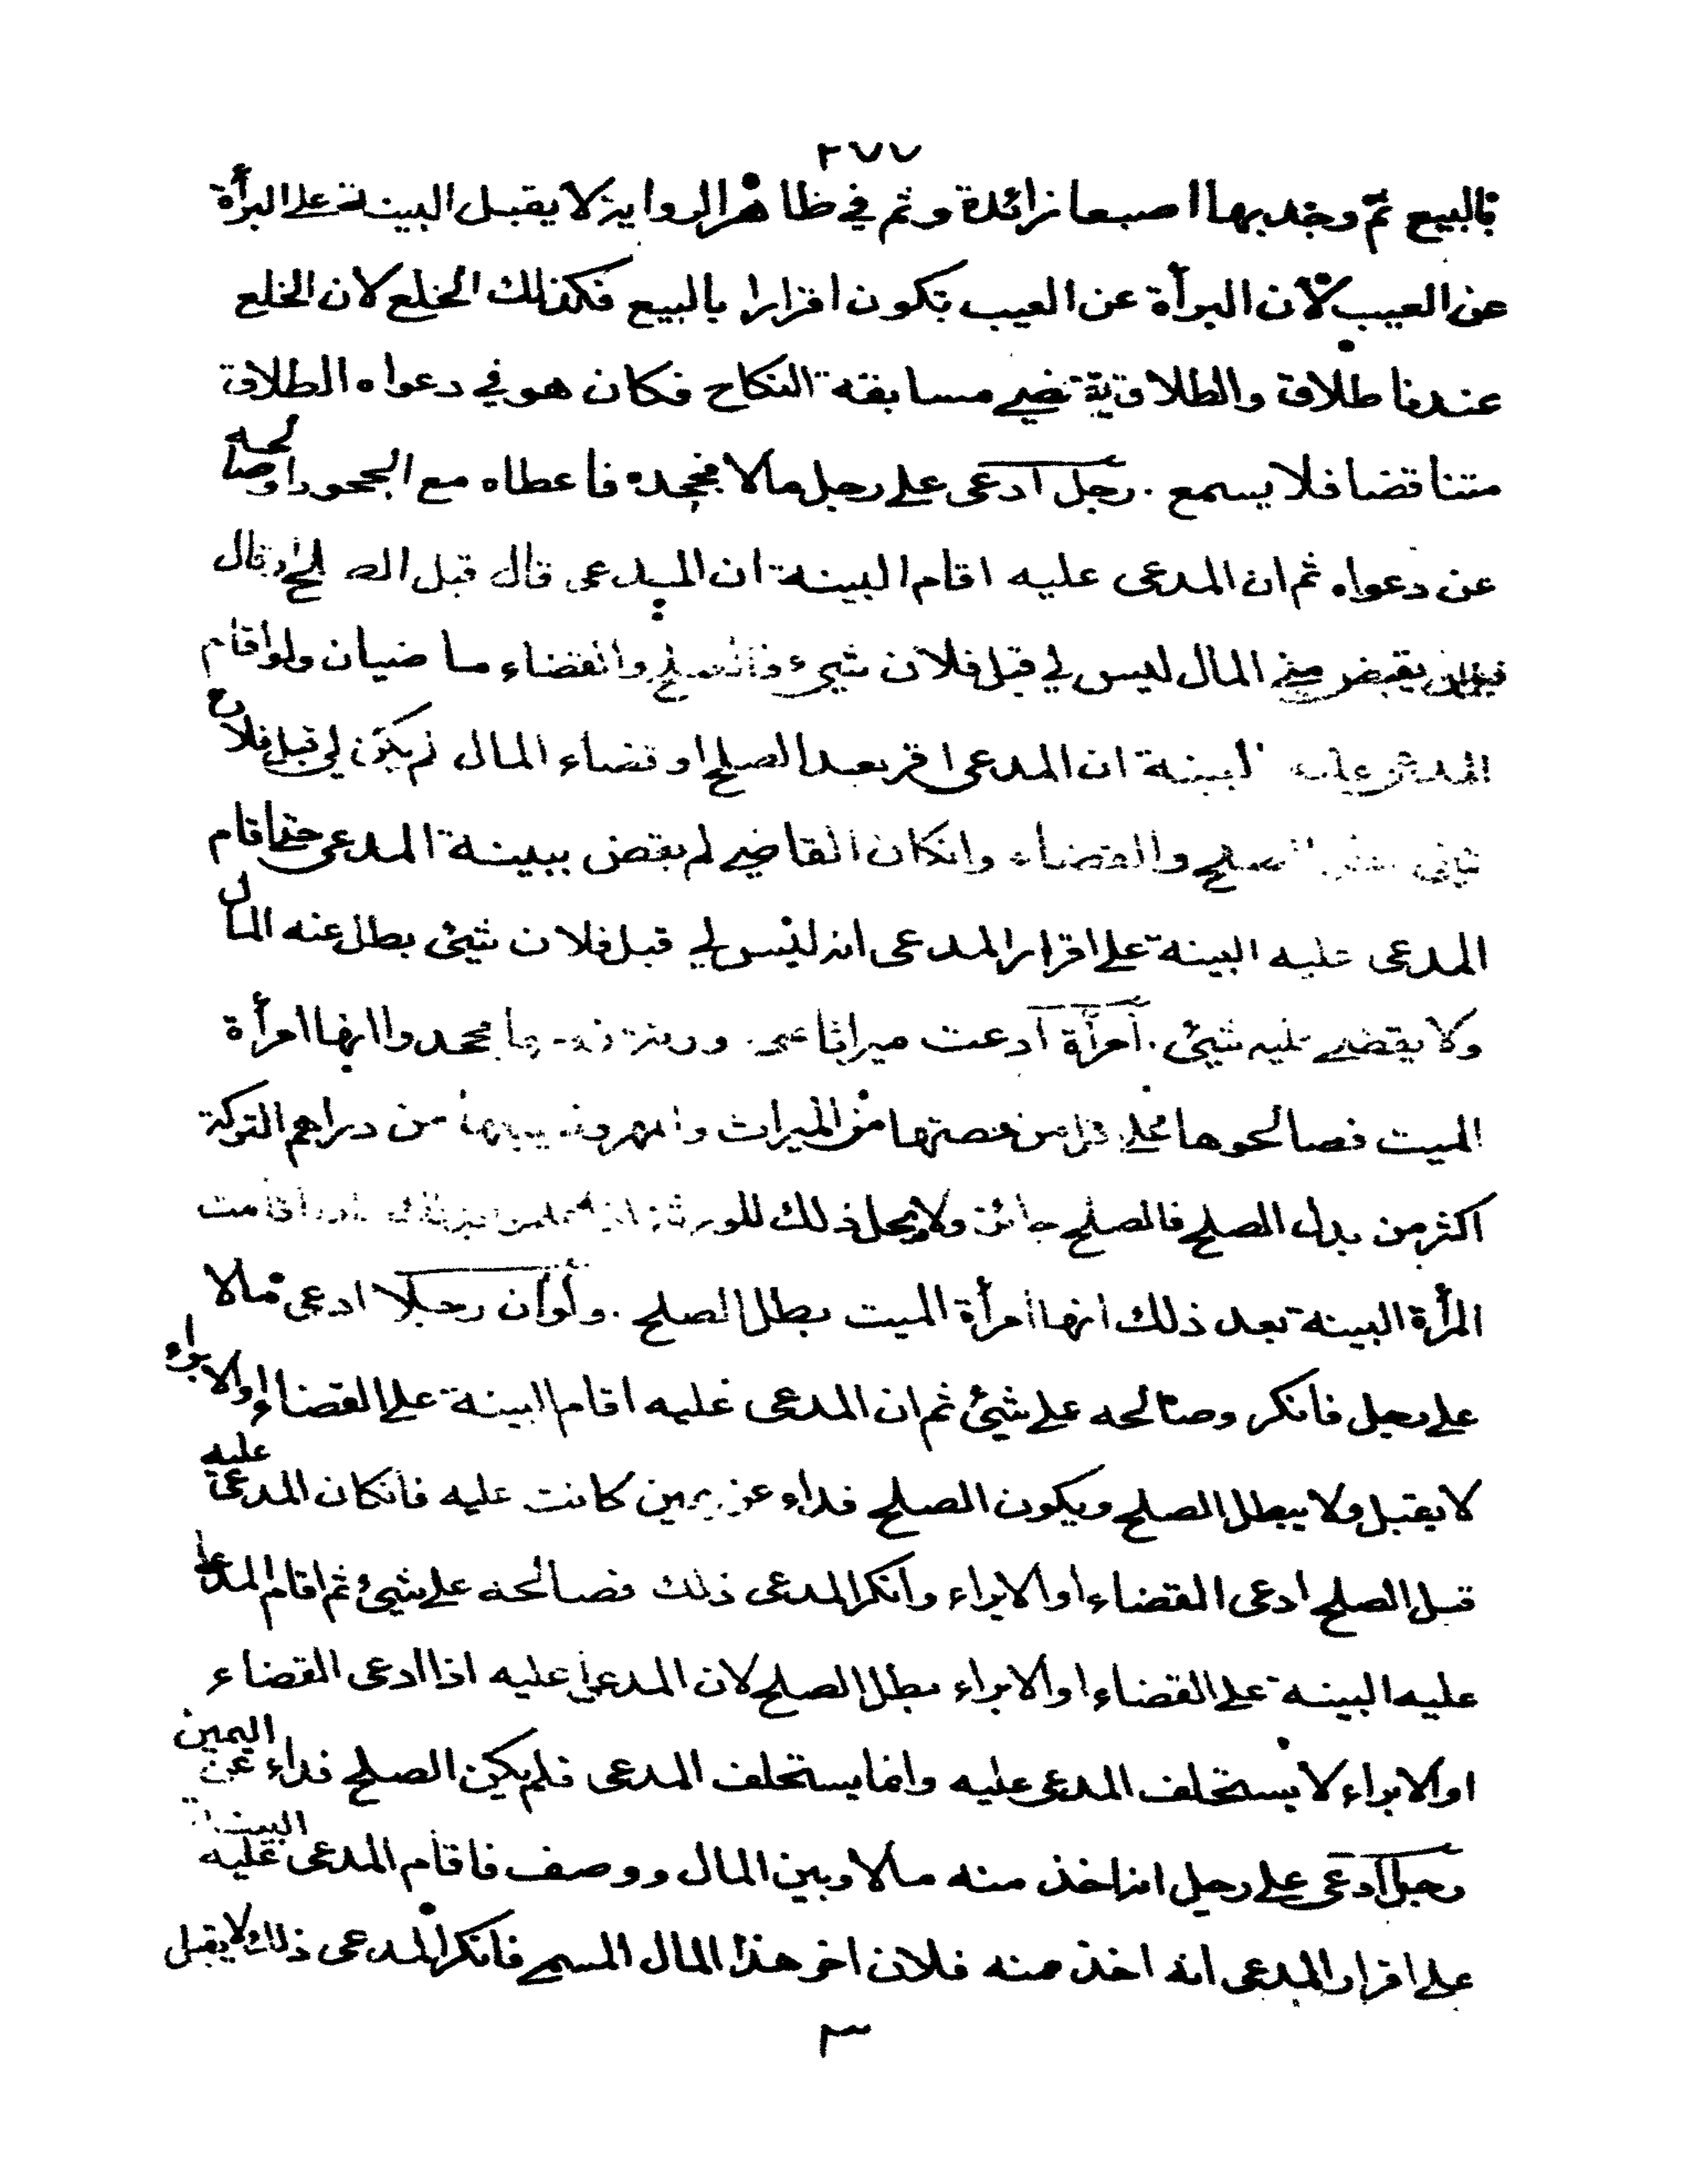 ٢٧٧
بالبيع ثم وجد بها اصبعا زائدة وثم في ظاهر الرواية لا يقبل البينة على البرأة
عن العيب لان البرأة عن العيب تكون اقرارا بالبيع فكذلك الخلع لان الخلع
عندنا طلاق والطلاق يقتضي مسابقة النكاح فكان هو في دعواه الطلاق
متناقضا فلا يسمع . رجل ادعى على رجل مالا فجحده فاعطاه مع الجحود او صالحه
عن دعواه ثم ان المدعى عليه اقام البينة ان المدعى قال قبل الصلح او قال
قبل ان يقبض مني المال ليس لي قبل فلان شيء فالصلح والقضاء ماضيان ولو اقام
المدعى عليه البينة ان المدعى اقر بعد الصلح او قضاء المال لم يكن لي قبل فلان
شيء الصلح والقضاء وانكان القاضي لم يقض ببينة المدعى حتى اقام
المدعى عليه البينة على اقرار المدعى انه ليس لي قبل فلان شيئ بطل عنه المال
ولا يقضى عليه شيئ . امرأة ادعت ميراثا ورثته فجحدوا انها امرأة
الميت فصالحوها على اقل من حصتها من الميراث والمهر ونصيبها من دراهم التركة
اكثر من بدل الصلح فالصلح جائز ولا يحل ذلك للورثة اقامت
المرأة البينة بعد ذلك انها امرأة الميت بطل الصلح . ولو ان رجلا ادعى مالا
على رجل فانكر وصالحه على شيئ ثم ان المدعى عليه اقام البينة على القضاء او الابراء
لا يقبل ولا يبطل الصلح ويكون الصلح فداء عن يمين كانت عليه فانكان المدعى عليه
قبل الصلح ادعى القضاء او الابراء وانكر المدعى ذلك فصالحه على شيئ ثم اقام المدعا
عليه البينة على القضاء او الابراء بطل الصلح لان المدعى عليه اذا ادعى القضاء
او الابراء لا يستحلف المدعى عليه وانما يستحلف المدعى فلم يكن الصلح فداء عن اليمين
رجل ادعى على رجل انه اخذ منه مالا وبين المال ووصف فاقام المدعى عليه البينة
على اقرار المدعى انه اخذ منه فلان اخر هذا المال المسمى فانكر المدعى ذلك لا يقبل